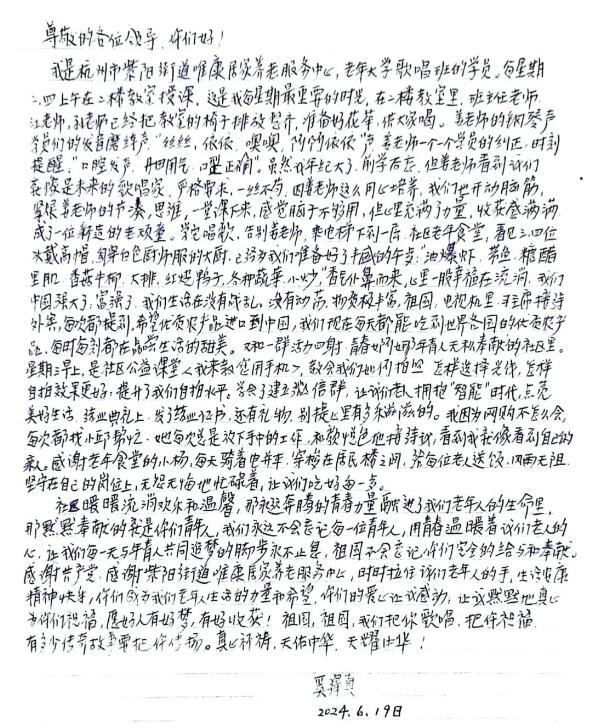 尊敬的各位领导、你们好！
我是杭州市紫阳街道唯康居家养老服务中心,老年大学歌唱班的学员。每星期
二,四上午在二楼教室授课,这是我每星期最重要的时光,在二楼教室里,班主任老师
江老师,孔老师已经把教室的椅子排放整齐,准备好花茶,供大家喝。姜老师的钢琴声
学员们的发音声,"丝丝,依依,噢噢,啊啊依依"声姜老师一个个学员的纠正,时刻
提醒,"口腔发声,丹田用气,口型正确"。虽然我年纪大了,前学后忘,但姜老师看到我们
哀像是未来的歌唱家,严格要求,一丝不苟,因姜老师这么用心培养,我们也开动脑筋,
紧跟姜老师的节奏,思维,一堂课下来,感觉脑子不够用,但心里充满了力量,收获感满满
成了一位新造的老顽童。学完唱歌,告别姜老师,乘电梯下到一层,社区老年食堂,看见三四位
头戴高帽,身穿白色厨师服的大厨,已经为我们准备好了丰盛的午餐:"油爆虾、带鱼、糖醋
里肌、香菇牛柳、大排、红烧鸭子,各种蔬菜、小炒,"香气扑鼻而来,心里一股幸福在流淌,我们
中国强大了,富强了,我们生活在没有战乱,没有动荡,物资极丰富,祖国,电视机里,习主席接待
外宾,每次都提到,希望优质农产品进口到中国,我们现在每天都能吃到世界各国的优质农产
品,每时每刻都在品尝生活的甜美。又和一群活力四射,青春如火如那年青人无私奉献的社区里。
星期三早上,是社区公益课堂《我来教您用手机》,教会我们如何拍照,怎样选择光线,怎样
自拍效果更好,提升了我们自拍水平。学会了建立微信群,让我们老人拥抱"智能"时代,点亮
美好生活,结业典礼上,发了结业证书,还有礼物,别提心里有多末滋滋的。我因为网购不怎么会,
每次都找小邱帮忙,她每次总是放下手中的工作,和颜悦色地接待我,看到我就像看到自己的
亲人。感谢老年食堂的小杨,每天骑着电并车,穿梭在居民楼之间,给每位老人送饭,风雨无阻,
坚守在自己的岗位上,无怨无悔地忙碌着,让我们吃好每一点。
社区暖暖流淌欢乐和温馨,那永远奔腾的青春力量融进了我们老年人的生命里,
那默默奉献的爱是你们青年人,我们永远不会忘记每一位青年人,用青春温暖着我们老人的
心,让我们每一天与年青人共同追梦的脚步永不止息,祖国不会忘记,你们完全的给与和奉献。
感谢共产党,感谢紫阳街道唯康居家养老服务中心,时时拉住我们老年人的手,生活健康
精神快乐,你们成为我们老年人生活的力量和希望,你们的爱心让我感动,让我默默地真心
为你们祝福,愿好人有好梦,有好收获！祖国,祖国,我们把你歌唱,把你祝福,
有多少传奇故事要把你传扬。真心祈祷,天佑中华,天耀中华！
2024.6.19日